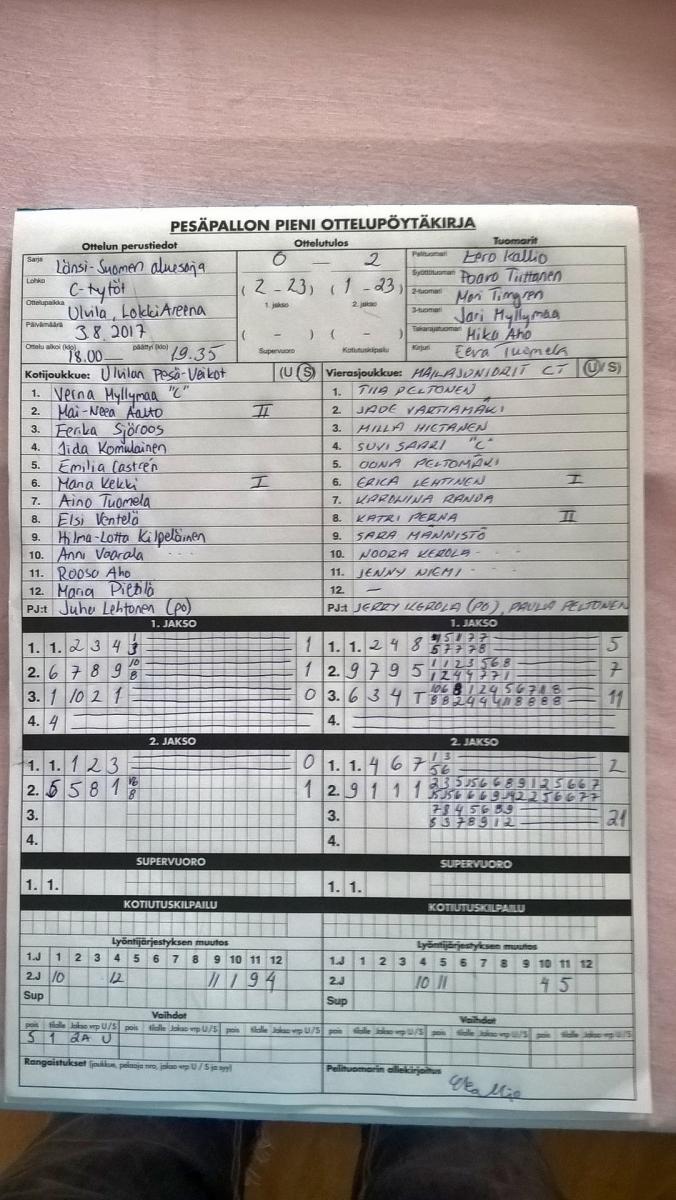 PESÄPALLON PIENI OTTELUPÖYTÄKIRJA
Ottelun perustiedot
Sarja Länsi-Suomen aluesarja
Lohko C-tytöt
Ottelupaikka Ulvila, LokkiAreena
Päivämäärä 3.8.2017
Ottelu alkoi (klo) 18.00 — päättyi (klo) 19.35
Ottelutulos
0 — 2
(2 - 23) (1 - 23)
1. jakso 2. jakso
( - ) ( - )
Supervuoro Kotiutuskilpailu
Tuomarit
Pelituomari Eero Kallio
Syöttötuomari Paavo Tiittanen
2-tuomari
3-tuomari Jari Myllymaa
Takarajatuomari Mika Aho
Kirjuri Eeva Tuomela
Kotijoukkue: Ulvilan Pesä-Veikot (U/S)
1. Verna Myllymaa "C"
2. Mai-Neea Aalto II
3. Eerika Sjöroos
4. Iida Komulainen
5. Emilia Castrén
6. Mana Kekki I
7. Aino Tuomela
8. Elsi Ventelä
9. Hilma-Lotta Kilpeläinen
10. Anni Vaarala
11. Roosa Aho
12. Maria Pietilä
PJ:t Juha Lehtonen (PO)
Vierasjoukkue: MAILAJUNIORIT CT (U/S)
1. TIIA PELTONEN
2. JADE VARTIAMÄKI
3. MILLA HIETANEN
4. SUVI SAARI "C"
5. OONA PELTOMÄKI
6. ERICA LEHTINEN I
7. KAROLIINA RANDA
8. KATRI PERNA II
9. SARA MÄNNISTÖ
10. NOORA KEROLA
11. JENNY NIEMI
12. —
PJ:t JERRY KEROLA (PO), PAULA PELTONEN
1. JAKSO
1. 1. 2 3 4 1
2. 6 7 8 9 10 8 1
3. 1 10 2 1 0
4. 4
1. JAKSO
1. 1. 2 4 8 5
2. 9 7 9 5 1 1 2 3 5 6 8 7
1 2 4 4 7 7 1
3. 6 3 4 T 11
4.
2. JAKSO
1. 1. 1 2 3 0
2. 5 5 8 1 1
3.
4.
2. JAKSO
1. 1. 4 6 7 1 3 2
5 6
2. 9 1 1 1
3. 7 8 4 5 6 8 9 21
5 3 7 8 9 1 2
4.
SUPERVUORO
1. 1.
SUPERVUORO
1. 1.
KOTIUTUSKILPAILU
KOTIUTUSKILPAILU
Lyöntijärjestyksen muutos
1.J 1 2 3 4 5 6 7 8 9 10 11 12
2.J 10 12 11 1 9 4
Sup
Lyöntijärjestyksen muutos
1.J 1 2 3 4 5 6 7 8 9 10 11 12
2.J 10 11 4 5
Sup
Vaihdot
pois tilalle Jakso vrp U/S pois tilalle Jakso vrp U/S pois tilalle Jakso vrp U/S
5 1 2A U
Vaihdot
pois tilalle Jakso vrp U/S pois tilalle Jakso vrp U/S pois tilalle Jakso vrp U/S
Rangaistukset (joukkue, pelaaja nro, jakso vrp U / S ja syy)
Pelituomarin allekirjoitus